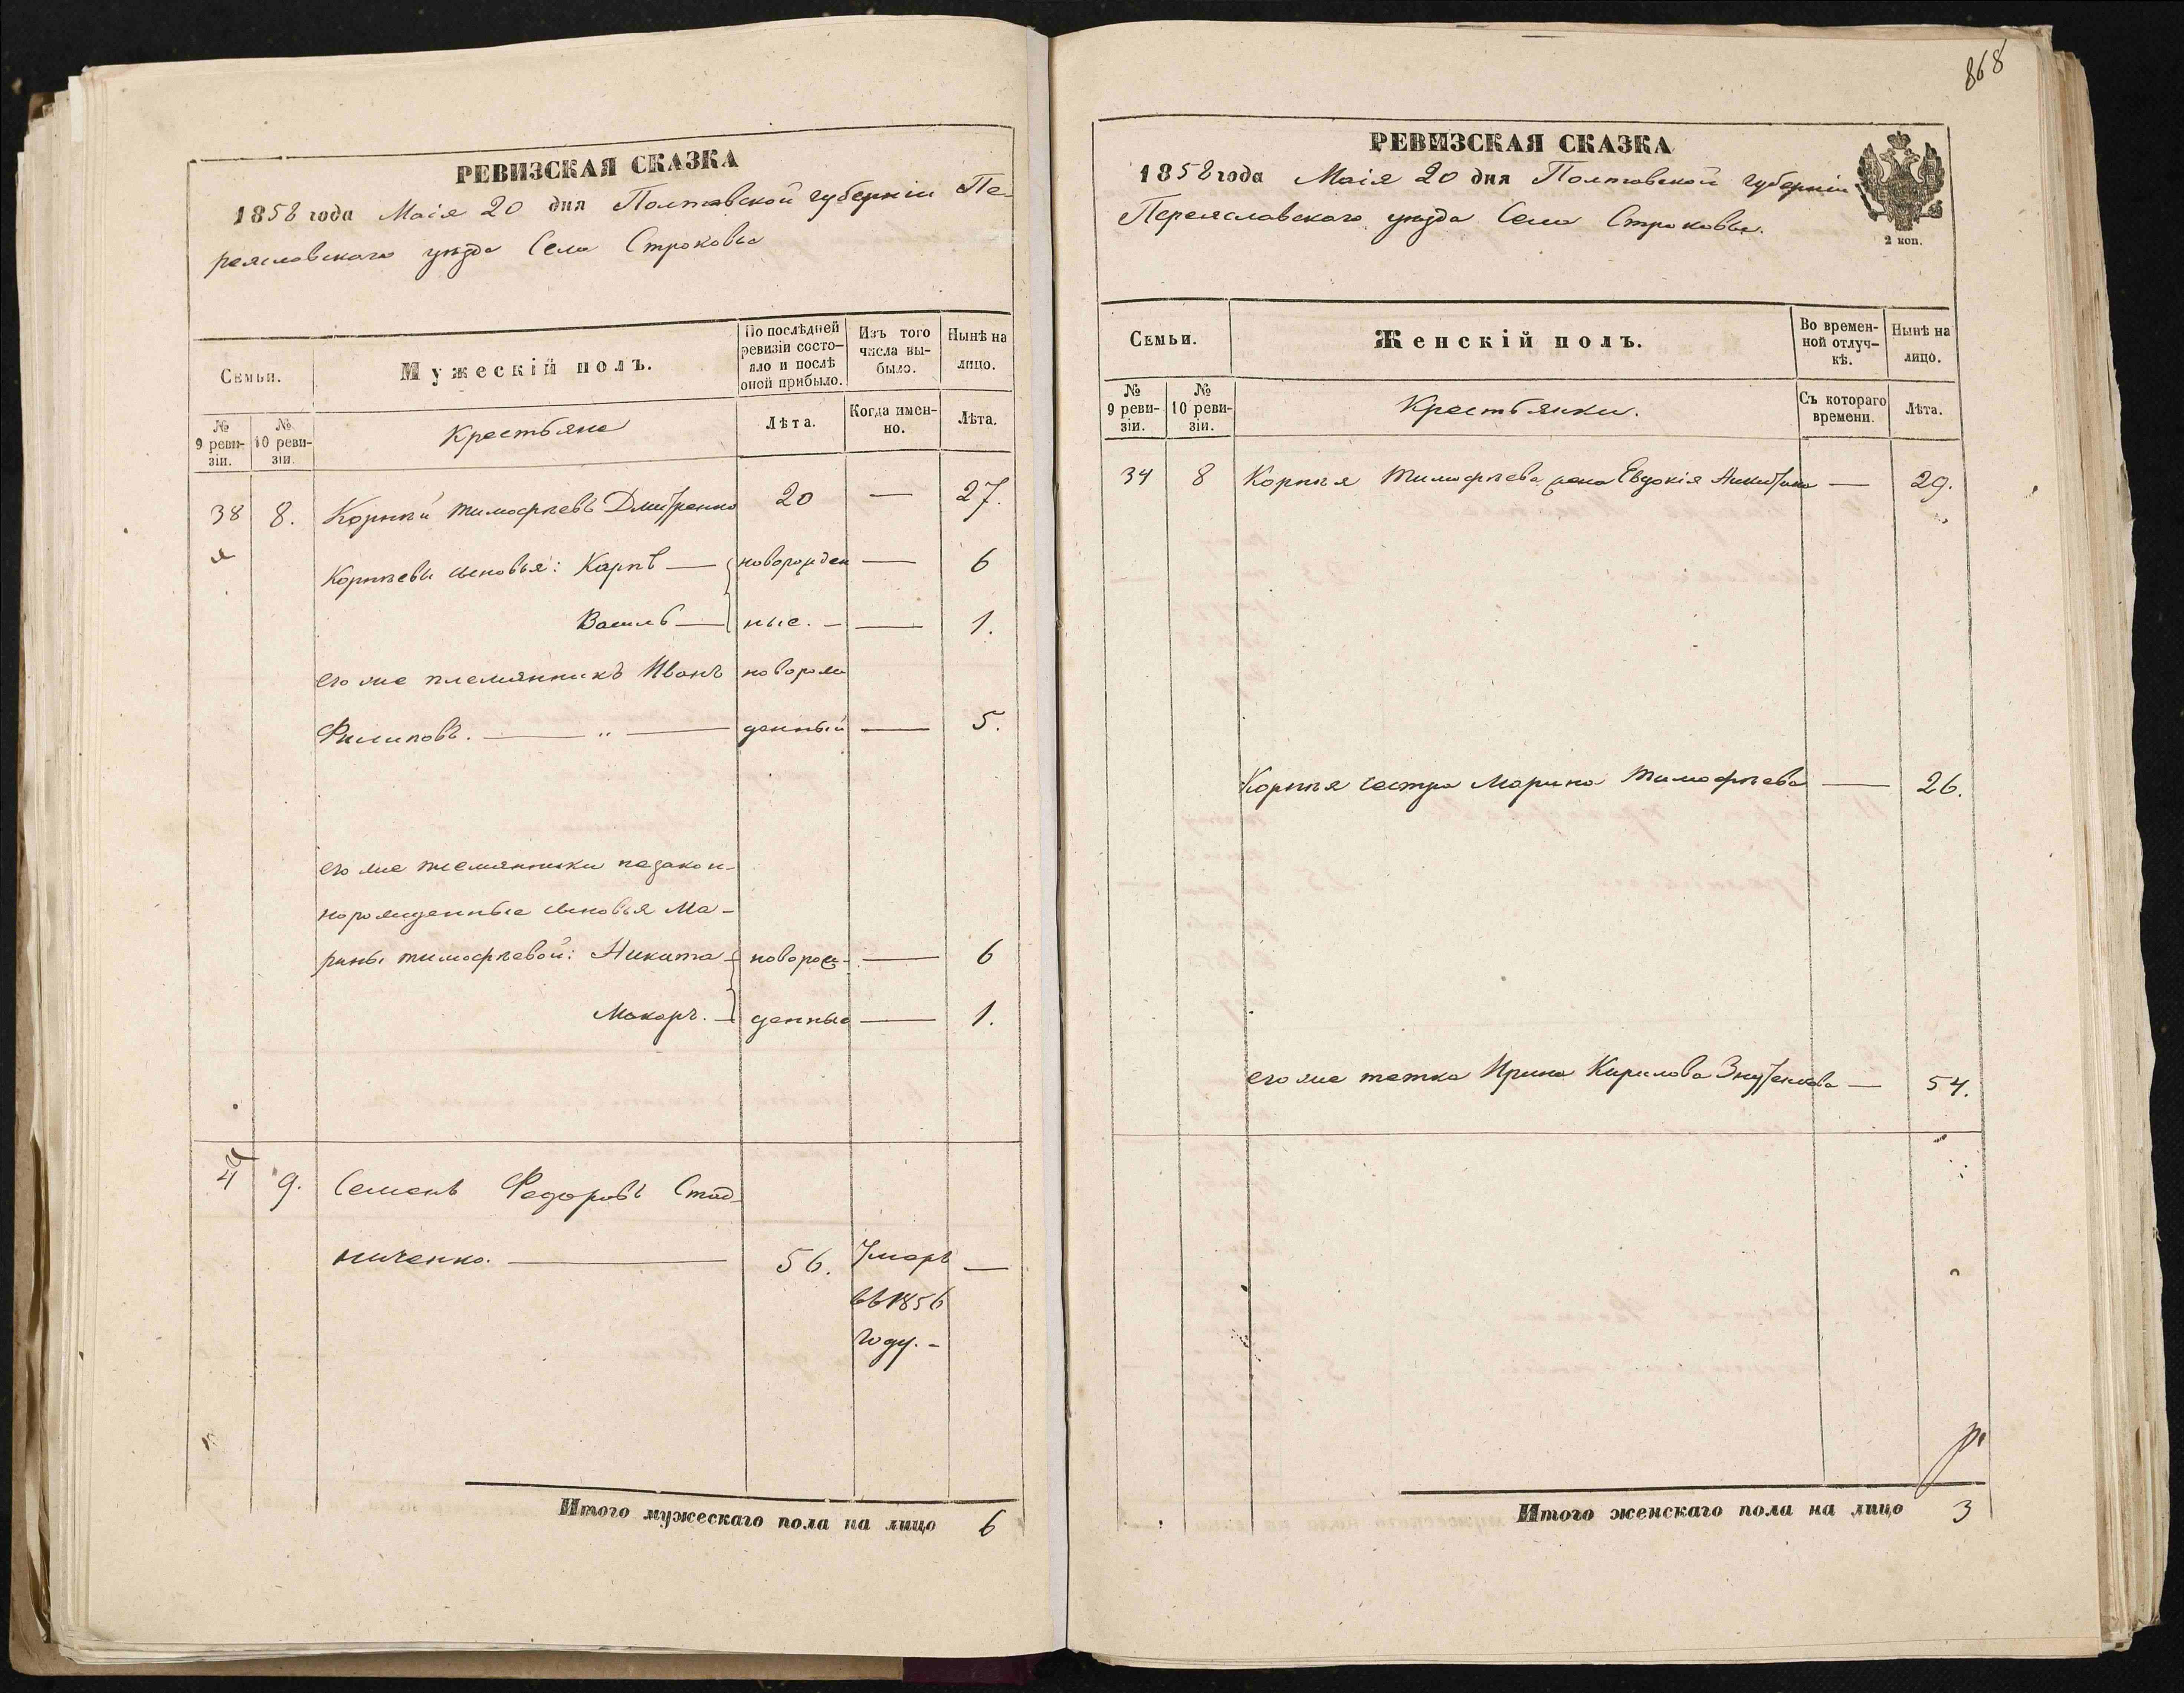 868
РЕВИЗСКАЯ СКАЗКА
1858 года Маія 20 дня Полтавской губерніи Пе-
реяславскаго уѣзда Села Строковы
Семьи.
Мужескій полъ.
По послѣдней ревизіи состояло и послѣ оной прибыло.
Изъ того числа выбыло.
Нынѣ на лицо.
№ 9 ревизіи.
№ 10 ревизіи.
Крестьяне
Лѣта.
Когда именно.
Лѣта.
38 8. Корнѣй Тимофѣевъ Дмитренко 20 — 27.
Корнѣевы сыновья: Карпъ — новорожден — 6
Василь — ные. — — 1.
его же племянникъ Иванъ новорож
Филиповъ. — " — денный — 5.
его же племянники незакон-
норожденные сыновья Ма-
рины Тимофѣевой: Никита новорож- — 6
Макаръ. — денные — 1.
4 9. Семенъ Федоровъ Стад-
ниченко. — 56. Умеръ —
въ 1856
году. -
Итого мужескаго пола на лицо 6
РЕВИЗСКАЯ СКАЗКА
1858 года Маія 20 дня Полтавской губерніи
Переяславскаго уѣзда Села Строковы.
2 коп.
Семьи.
Женскій полъ.
Во временной отлучкѣ.
Нынѣ на лицо.
№ 9 ревизіи.
№ 10 ревизіи.
Крестьянки.
Съ котораго времени.
Лѣта.
34 8 Корнѣя Тимофѣева жена Евдокія Никитина — 29.
Корнѣя сестра Марина Тимофѣева — 26.
его же тетка Ирина Кирилова — 54.
Итого женскаго пола на лицо 3